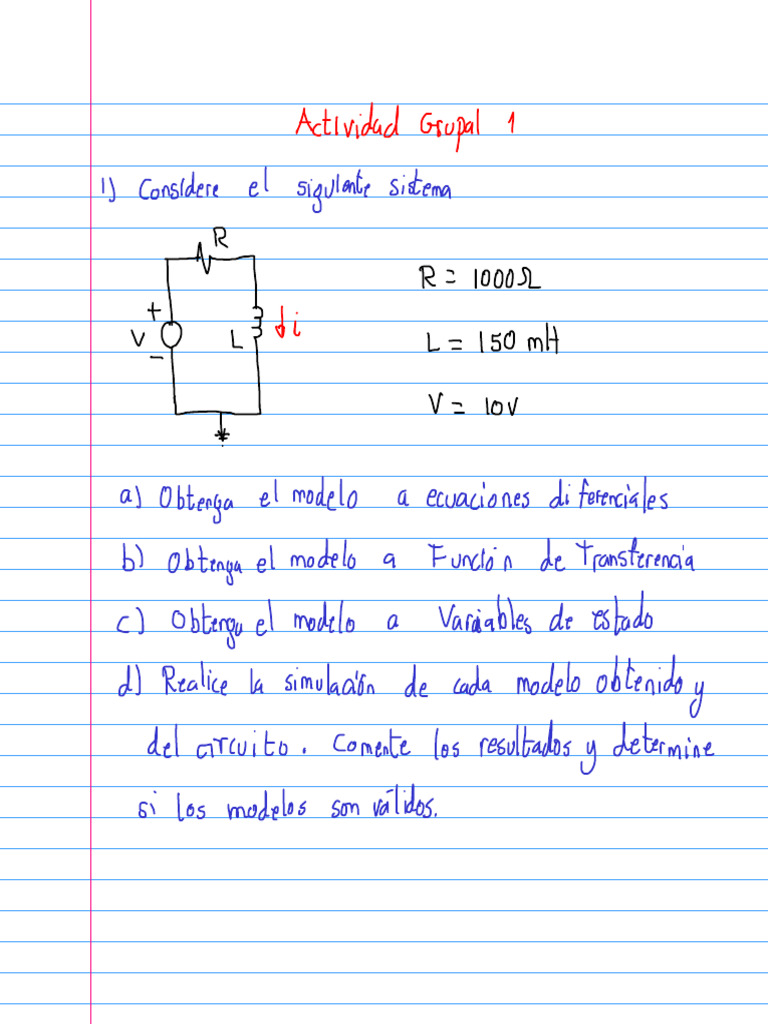 Actividad Grupal 1
1) Considere el siguiante sistema
R
R = 1000Ω
+
V
-
L
i
L = 150 mH
V = 10V
a) Obtenga el modelo a ecuaciones diferenciales
b) Obtenga el modelo a Función de Transferencia
c) Obtenga el modelo a Variables de estado
d) Realice la simulación de cada modelo obtenido y
del circuito. Comente los resultados y determine
si los modelos son válidos.